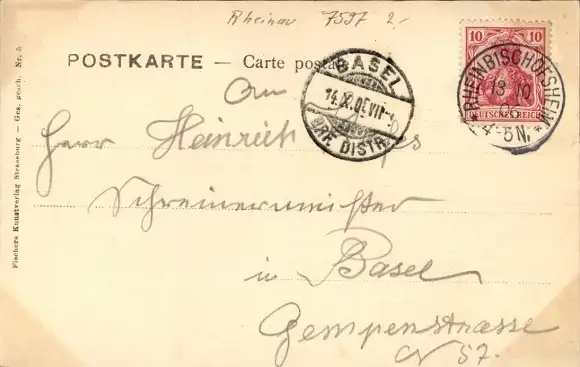 Rheinau 7597 2,-
POSTKARTE — Carte posta
10 10
DEUTSCHES REICH
RHEINBISCHOFSHEIM
13 10
4-5N.*
BASEL
14.X.05.VII-
BRF. DISTR.
An
Herr Heinrich
Schreinermeister
in Basel
Gempenstrasse
N 57.
Fischers Kunstverlag Strassburg — Ges. gesch. Nr. 5